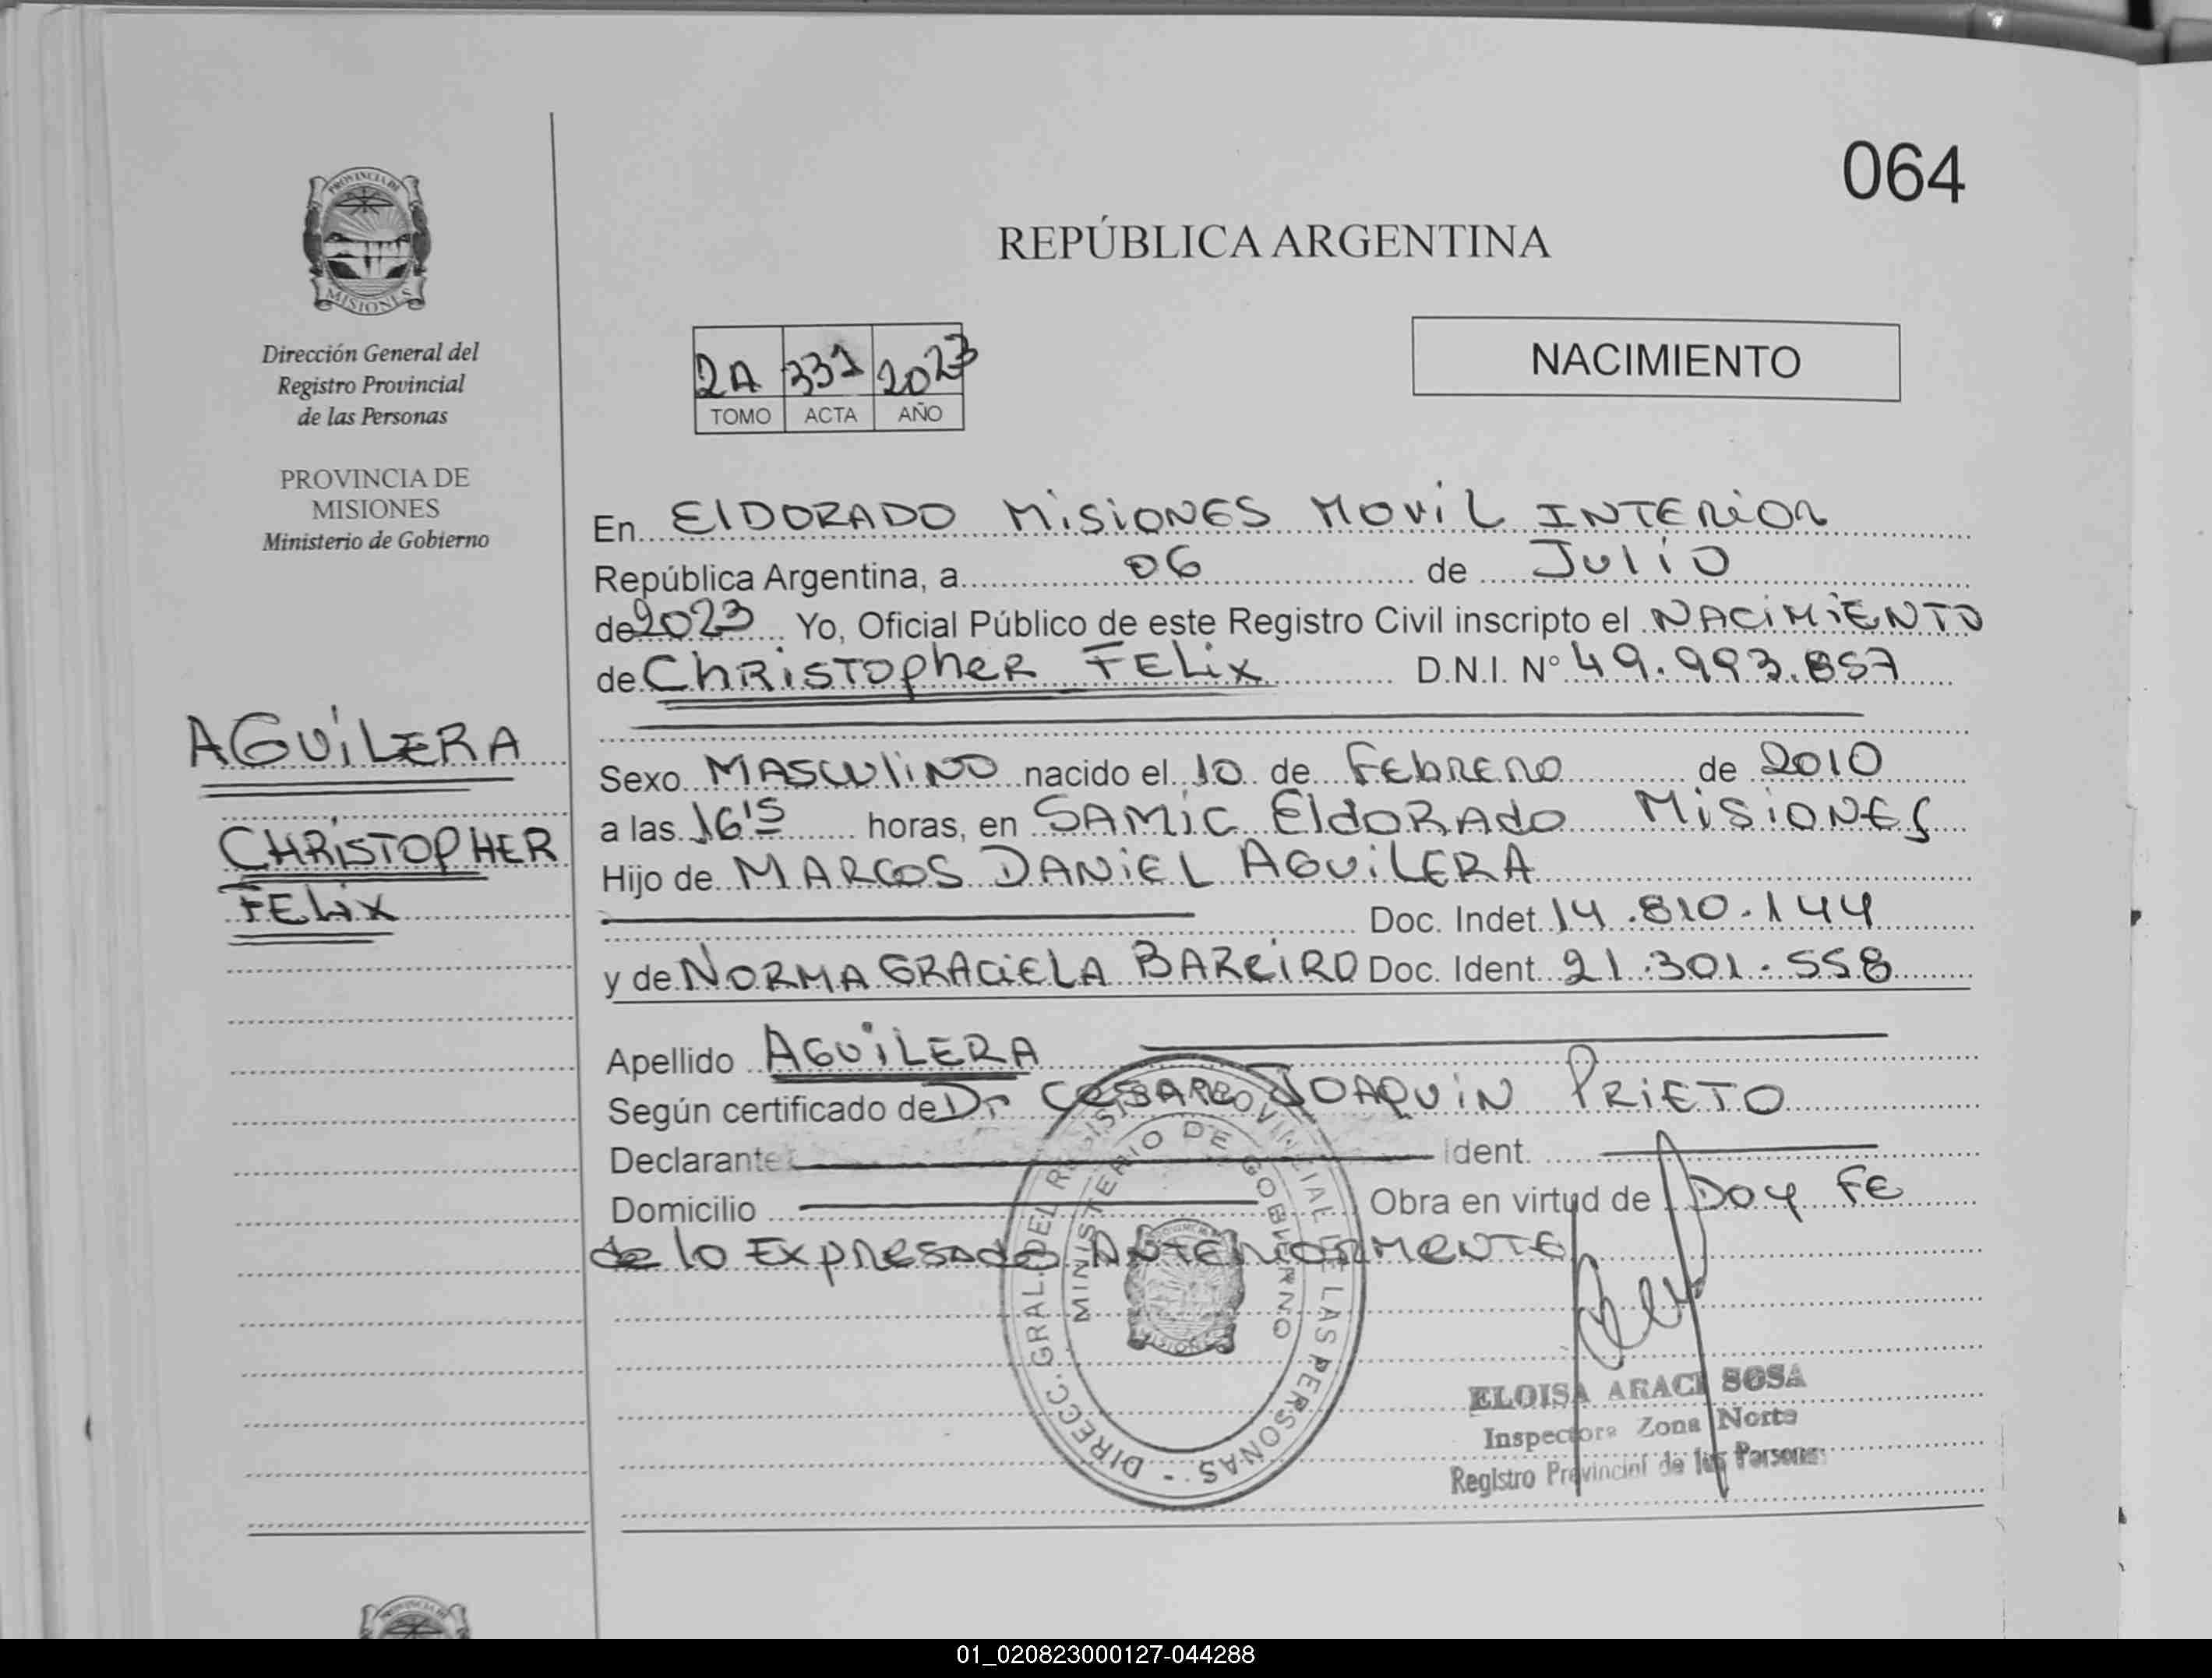 064
REPÚBLICA ARGENTINA
PROVINCIA DE
MISIONES
Dirección General del
Registro Provincial
de las Personas
PROVINCIA DE
MISIONES
Ministerio de Gobierno
2A 331 2023
TOMO ACTA AÑO
NACIMIENTO
En ElDORADO MiSiONES MOViL INTERiOR
República Argentina, a 06 de Julio
de 2023 Yo, Oficial Público de este Registro Civil inscripto el NACiMiENTO
de ChRiSTOPhER FELix D.N.I. Nº 49.993.857
AGUiLERA
CHRiSTOPHER
FELix
Sexo MASCuliNO nacido el 10 de FEbRERO de 2010
a las 16'15 horas, en SAMiC ElDORADO MiSiONES
Hijo de MARCOS DANiEL AGUiLERA
Doc. Indet. 14.810.144
y de NORMA GRACiELA BAREiRO Doc. Ident. 21.301.558
Apellido AGUiLERA
Según certificado de Dr CESAR JOAQUiN PRiETO
Declarante Ident.
Domicilio Obra en virtud de DOY FE
de lo ExpRESADO ANTERiORMENTE
DIRECC. GRAL. DEL REGISTRO PROVINCIAL DE LAS PERSONAS -
MINISTERIO DE GOBIERNO
MISIONES
ELOISA ARACI SOSA
Inspectora Zona Norte
Registro Provincial de las Personas
01_020823000127-044288